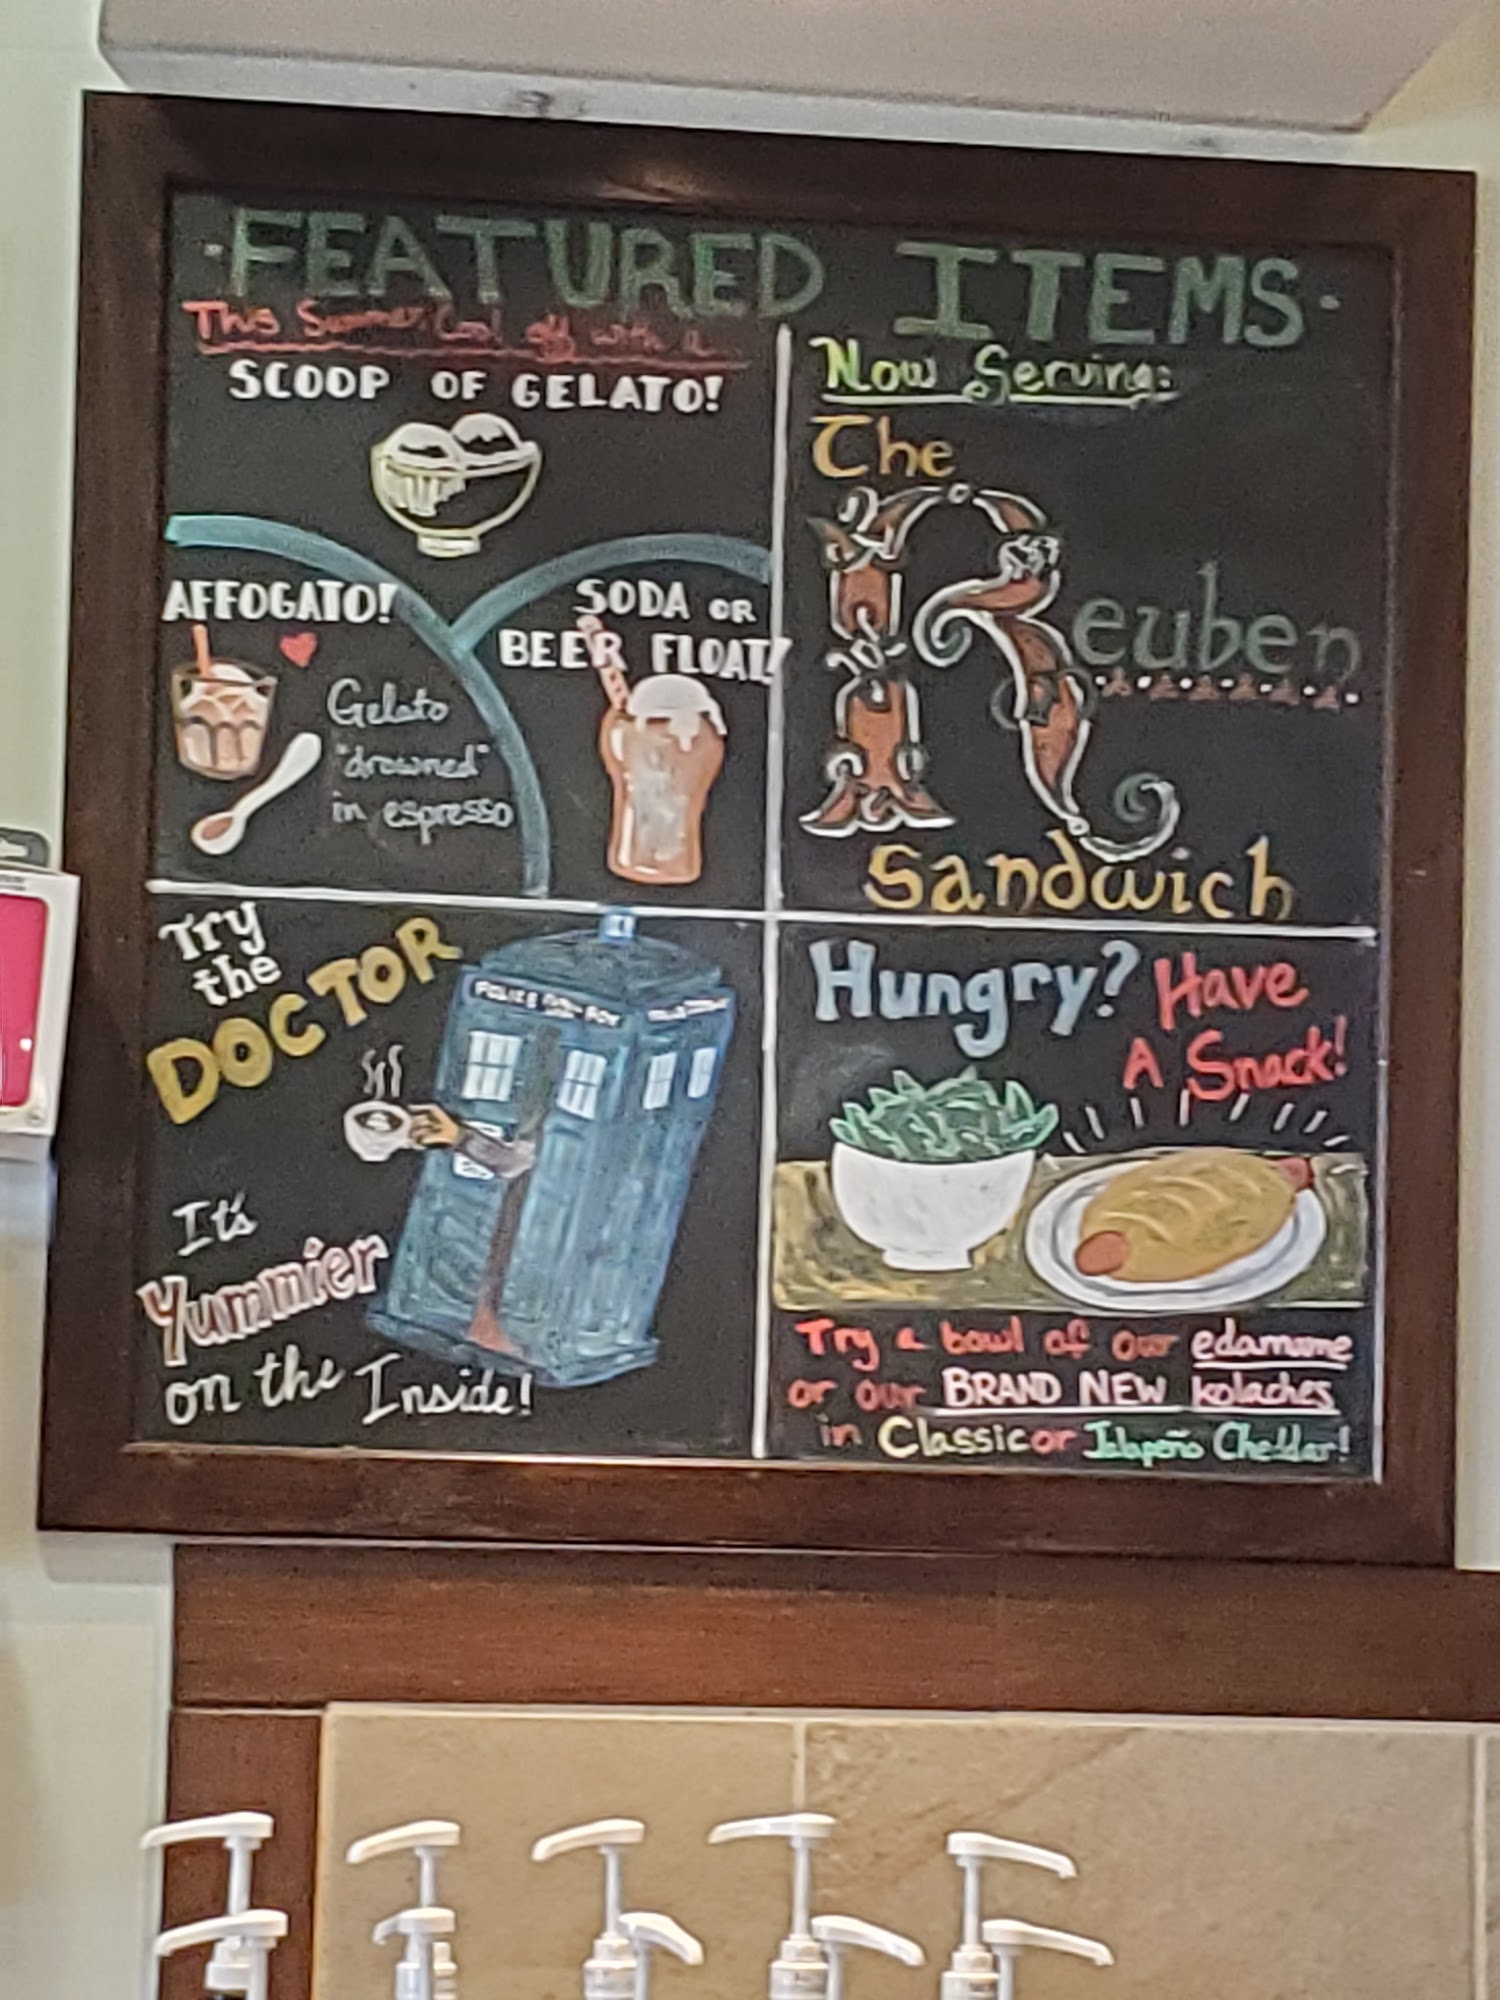 ·FEATURED ITEMS·
This Summer, Cool off with a
SCOOP OF GELATO!
AFFOGATO!
Gelato
"drowned"
in espresso
SODA OR
BEER FLOAT!
Now Serving:
The
Reuben
Sandwich
Try
the
DOCTOR
POLICE BOX
It's
Yummier
on the Inside!
Hungry? Have
A Snack!
Try a bowl of our edamame
or our BRAND NEW kolaches
in Classic or Jalapeño Cheddar!